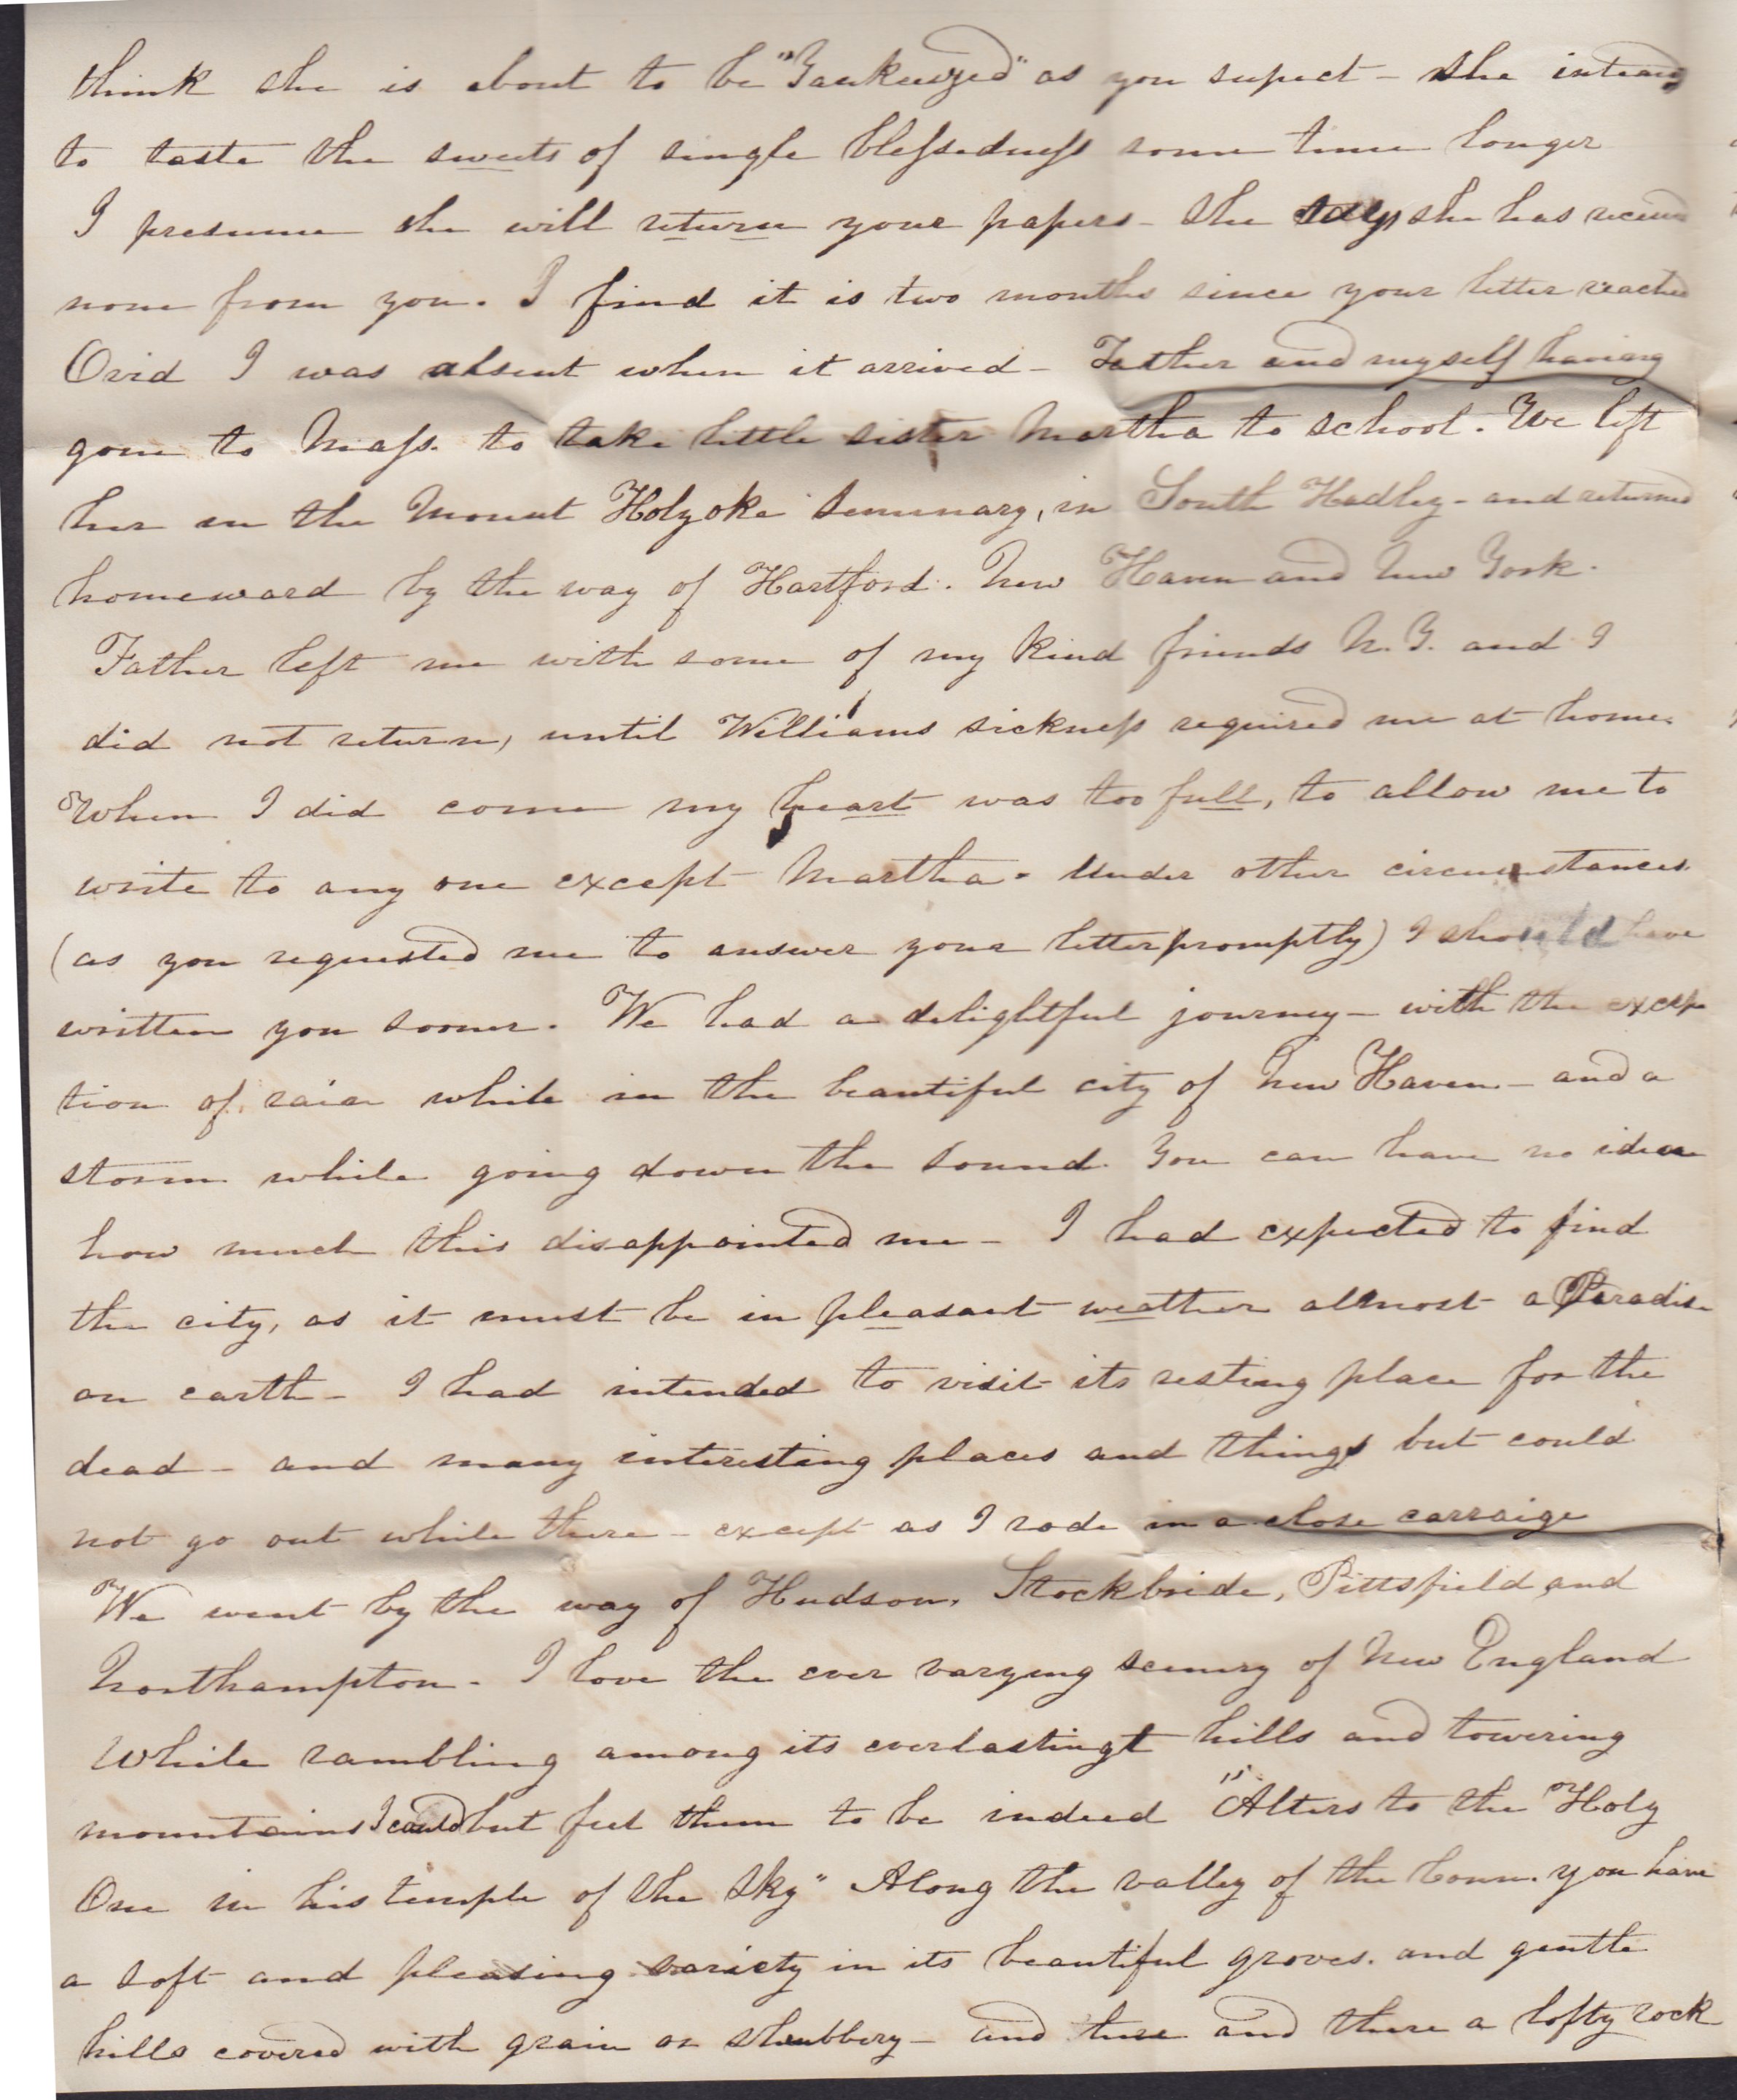 think she is about to be "Yankeyzed" as you supect - she intends
to taste the sweets of single blessedness some time longer
I presume she will return your papers - She says she has receivd
none from you. I find it is two months since your letter reached
Ovid I was absent when it arrived - Father and myself having
gone to Mass. to take little sister Martha to school. We left
her in the Mount Holyoke Seminary, in South Hadley - and returned
homeward by the way of Hartford. New Haven and New York.
Father left me with some of my kind friends N.Y. and I
did not return, until William's sickness required me at home.
When I did come my heart was too full, to allow me to
write to any one except Martha. Under other circumstances
(as you requested me to answer your letter promptly) I should have
written you sooner. We had a delightful journey - with the excep
tion of rain while in the beautiful city of New Haven - and a
storm while going down the Sound. You can have no idea
how much this disappointed me - I had expected to find
the city, as it must be in pleasant weather almost a Paradise
on earth - I had intended to visit its resting place for the
dead - and many interesting places and things but could
not go out while there - except as I rode in a close carraige
We went by the way of Hudson, Stockbride, Pittsfield and
Northampton. I love the ever varying scenery of New England
While rambling among its everlasting hills and towering
mountains I could but feel them to be indeed "Alters to the Holy
One in his temple of the sky" Along the valley of the Conn. you have
a soft and pleasing variety in its beautiful groves. and gentle
hills covered with grain or shubbery - and here and there a lofty rock